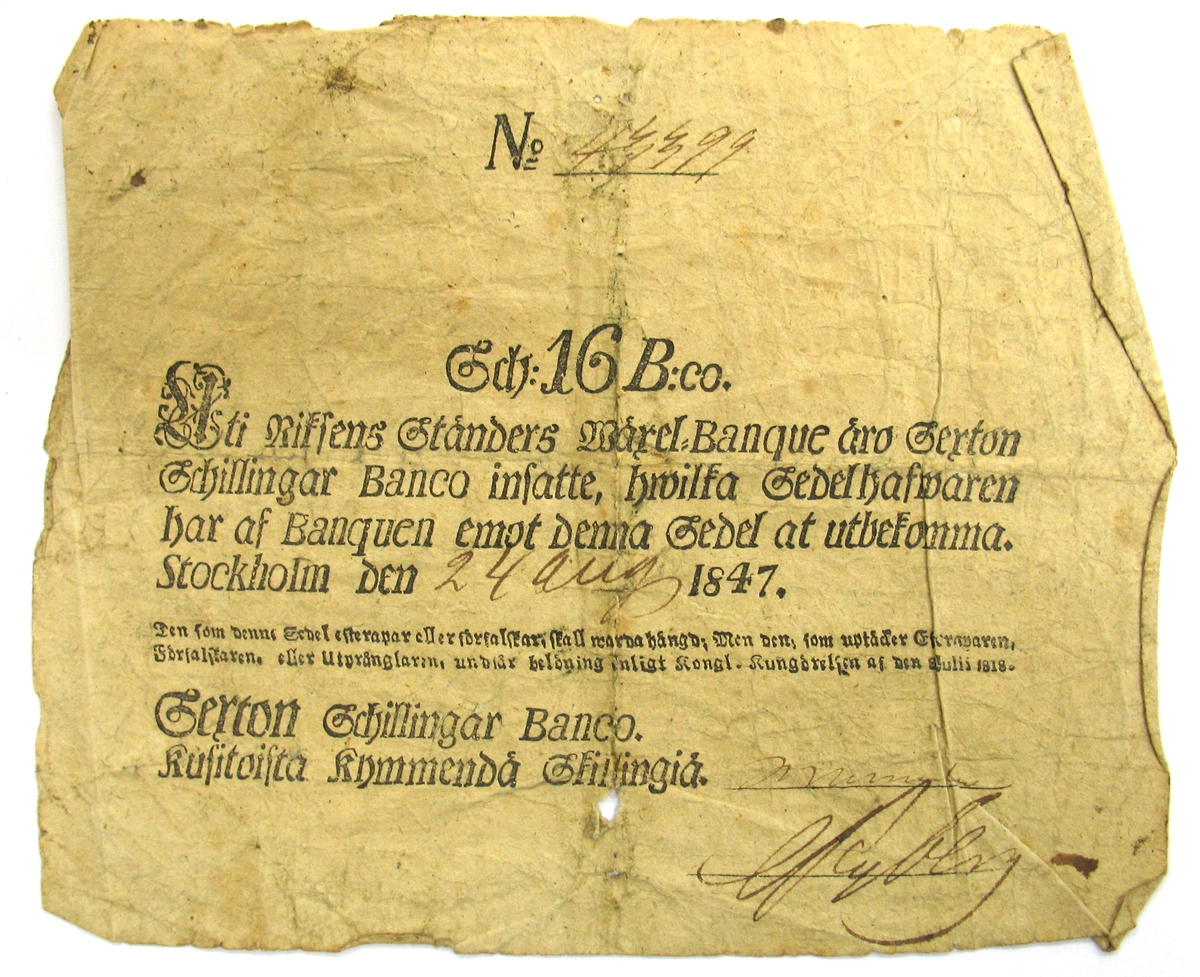 No 43399
Sch: 16 B:co.
Uti Riksens Ständers Wäxel-Banque äro Sexton
Schillingar Banco insatte, hwilka Sedelhafwaren
har af Banquen emot denna Sedel at utbekomma.
Stockholm den 24 Aug 1847.
Den som denne Sedel efterapar eller förfalskar, skall warda hängd; Men den, som uptäcker Efteraparen,
Förfalskaren, eller Utprånglaren, undfår belöning enligt Kongl. Kungörelsen af den Julii 1818.
Sexton Schillingar Banco.
Kusitoista Kymmendä Skillingiä.